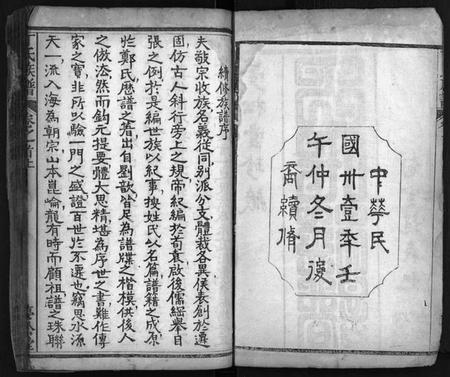 中華民
國卅壹年壬
午仲冬月後
裔續脩
續修族譜序
夫敬宗收族名義從同別派分支體裁各異侯表創於遷
固仿古人斜行旁上之規帝紀編於荀袁啟後儒經舉目
張之例於是編世族以紀事按姓氏以名篇譜籍之成原
於鄭氏厯譜之著出自劉歆皆足為譜牒之楷模供後人
之倣㳒然而鈎元提要體大思精堪為序世之書難作傳
家之寶非所以驗一門之盛證百世於不遷也竊思水源
天一流入海為朝宗山本崑崙龍有時而顧祖譜之珠聯
氏族譜
卷之首上